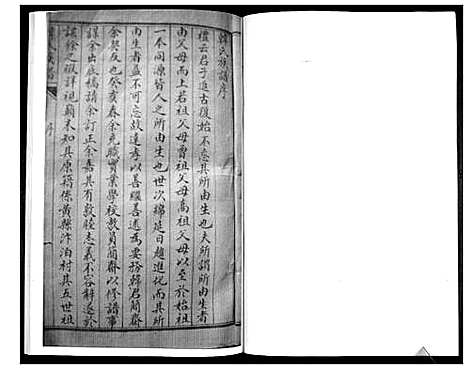 韓氏族譜序
禮云君子返古復始不忘其所由生也夫所謂所由生者
由父母而上若祖父母曾祖父母高祖父母以至於始祖
一本同源皆人之所由生也世次綿延日趨進化而其所
由生者益不可忘故達孝以善繼善述為要務韓君簡齋
余契友也癸亥春余充職實業學校教員簡齋以修譜事
謀余出底稿請余訂正余嘉其有敦睦志義不容辭遂於
譜餘之暇詳視顛末知其原籍係黃縣汴泊村其五世祖
序